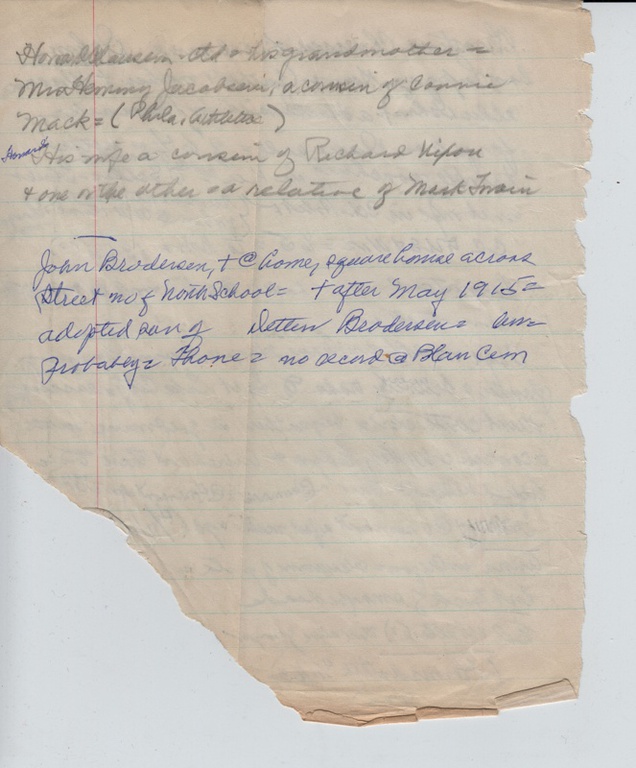 his grandmother =
Mrs Hemming Jacobsen, a cousin of Connie
Mack = (Phila. Athletics)
Howards
His wife a cousin of Richard Nixon
+ one or the other = a relative of Mark Twain
John Brodersen, + @ home, square house across
Street no of North School = + after May 1915 =
adopted son of Detlev Brodersen =
Probably = Thone = no record @ Blair Cem